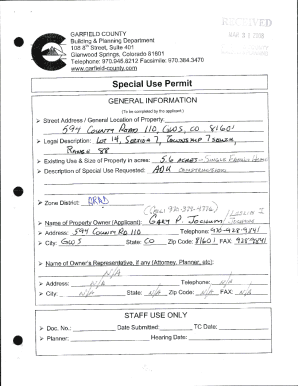 RECEIVED
GARFIELD COUNTY
Building & Planning Department
108 8th Street, Suite 401
Glenwood Springs, Colorado 81601
Telephone: 970.945.8212 Facsimile: 970.384.3470
www.garfield-county.com
Special Use Permit
GENERAL INFORMATION
(To be completed by the applicant.)
➢ Street Address / General Location of Property:
594 COUNTY ROAD 110, GWS, CO 81601
➢ Legal Description: LOT 14, SECTION 7, TOWNSHIP 7 SOUTH
RANGE 88
➢ Existing Use & Size of Property in acres: 5.6 ACRES - SINGLE FAMILY HOME
➢ Description of Special Use Requested: ADU
➢ Zone District:
➢ Name of Property Owner (Applicant): GARY P JOCHUM / LESLIE I
➢ Address: 594 COUNTY RD 110 Telephone: 970-928-9841
➢ City: GWS State: CO Zip Code: 81601 FAX: 928-9841
➢ Name of Owner's Representative, if any (Attorney, Planner, etc):
N/A
➢ Address: N/A Telephone: N/A
➢ City: N/A State: N/A Zip Code: N/A FAX: N/A
STAFF USE ONLY
➢ Doc. No.: Date Submitted: TC Date:
➢ Planner: Hearing Date: